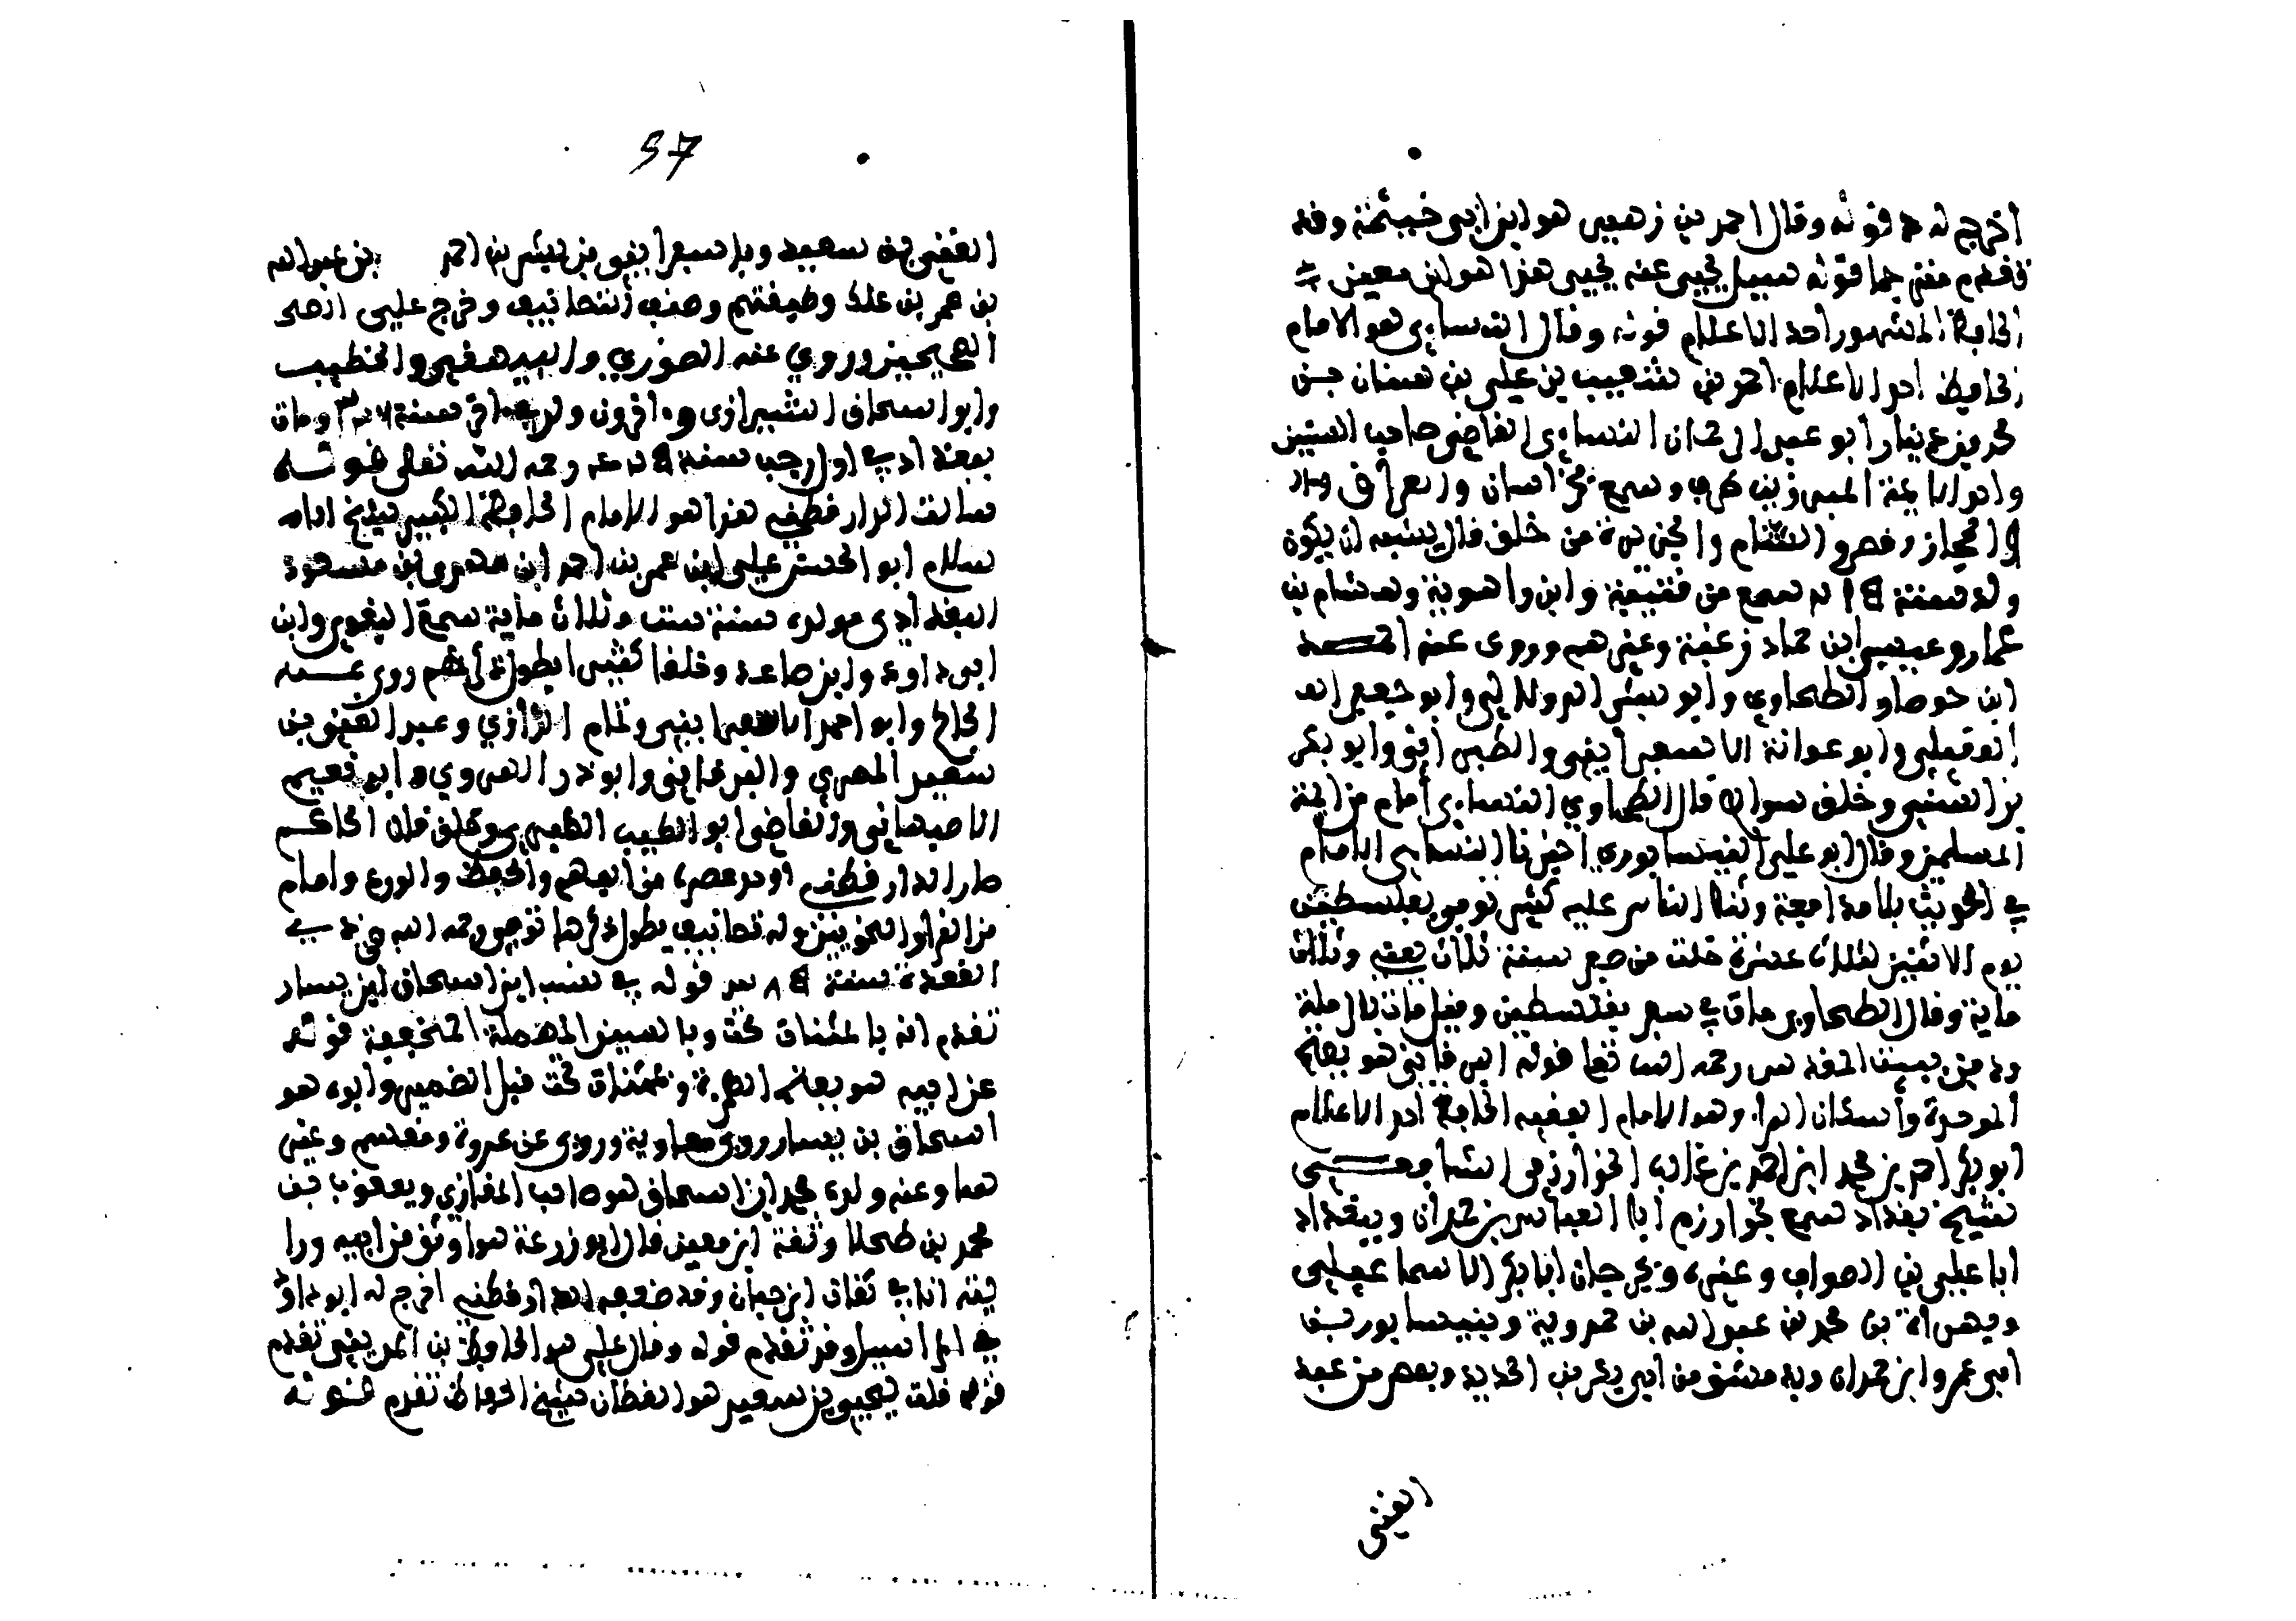 اخرج له م قوله وقال احمد بن زهير هو ابن ابي خيثمة وقد
تقدم قوله سئل يحيى عنه يحيى هذا هو ابن معين
الحافظ المشهور احد الاعلام قوله وقال النساءي هو الامام
الحافظ احد الاعلام احمد بن شعيب بن علي بن سنان بن
بحر بن دينار ابو عبد الرحمان النساءي القاضي صاحب السنن
واحد الايمة المبرزين وسمع بخراسان والعراق
والحجاز ومصر والشام والجزيرة من خلق قال يشبه ان يكون
ولد سنة سمع من قتيبة وابن راهوية وهشام بن
عمار وعيسى ابن حماد زغبة وغيرهم وروى عنه
ابن جوصا والطحاوي وابو بشر الدولابي وابو جعفر الع
العقيلي وابو عوانة الاسفرايني والطبراني وابو بكر
بن السني وخلق سواه قال الطحاوي النساءي امام من ايمة
المسلمين وقال ابو علي النيسابوري اخبرنا النساءي الامام
في الحديث بلا مدافعة وثنا الناس عليه كثير توفي بفلسطين
يوم الاثنين لثلاث عشرة خلت من صفر سنة ثلاث وثلاث
ماية وقال الطحاوي مات في صفر بفلسطين وقيل مات بالرملة
ودفن ببيت المقدس رحمه الله تعا قوله البرقاني هو بفتح
الموحدة واسكان الراء وهو الامام الفقيه الحافظ احد الاعلام
ابو بكر احمد بن محمد ابن احمد بن غالب الخوارزمي الشافعي
شيخ بغداد سمع بخوارزم ابا العباس بن حمدان وببغداد
ابا علي بن الصواف وغيره وبجرجان ابا بكر الاسماعيلي
وبهراة بن محمد بن عبد الله بن حمروية وبنيسابور بن
ابي عمرو ابن حمدان وبدمشق من ابي بكر بن الحديد وبمصر من عبد
الغني
97
الغني بن سعيد وباسفرايني من بشر بن احمد بن عبد الله
بن عمر بن علك وطبقتهم وصنف التصانيف وخرج على
الصحيحين وروى عنه الصوري والبيهقي والخطيب
وابو اسحاق الشيرازي واخرون سنة ومات
ببغداد في اول رجب سنة رحمه الله تعالى قوله
سالت الدارقطني هذا هو الامام الحافظ الكبير شيخ الا
سلام ابو الحسن علي ابن عمر بن احمد ابن مهدي بن مسعود
البغدادي مولده سنة ست وثلاث ماية سمع البغوي وابن
ابي داود وابن صاعد وخلقا كثيرا يطول ذكرهم روى عنه
الحاكم وابو احمد الاسفرايني وتمام الرازي وعبد الغني بن
سعيد المصري والبرقاني وابو ذر الهروي وابو نعيم
الاصبهاني والقاضي ابو الطيب الطبري وخلق قال الحاكم
صار الدارقطني اوحد عصره من الفهم والحفظ والورع وامام
من القراء والنحويين وله تصانيف يطول ذكرها توفي رحمه الله في ذي
القعدة سنة قوله في نسب ابن اسحاق ابن يسار
تقدم انه بالمثناة تحت وبالسين المهملة المخففة قوله
عن ابيه هو بفتح الهمزة وبمثناة تحت قبل الضمير وابوه هو
اسحاق بن يسار روى معاوية وروى عن عروة ومقسم وغير
هما وعنه ولده محمد ابن اسحاق هو صاحب المغازي ويعقوب بن
محمد بن طحلا وثقه ابن معين قال ابو زرعة هو اوثق من ابيه ورا
يته انا في ثقات ابن حبان وقد ضعفه الدارقطني اخرج له ابو داود
في المراسيل وقد تقدم قوله وقال علي هو الحافظ بن المديني تقدم
قوله قلت ليحيى بن سعيد هو القطان شيخ الحفاظ تقدم قوله